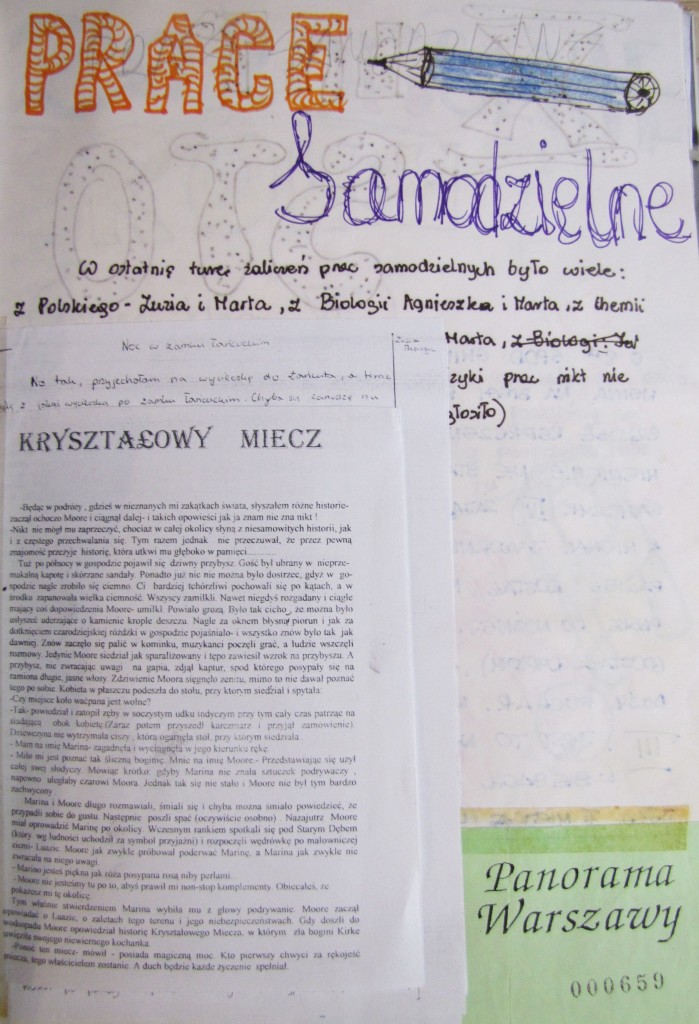 PRACE
Samodzielne
W ostatnię turę zaliczeń prac samodzielnych było wiele:
z Polskiego - Zuzia i Marta, z Biologii Agnieszka i Marta, z Chemii
Marta, z Biologi:
zyki prac nikt nie
Noc w zamku Łańcuckim
No tak, przyjechałam na wycieczkę do Łańcuta, a teraz
po zamku Łańcuckim. Chyba są
KRYSZTAŁOWY MIECZ
-Będąc w podróży , gdzieś w nieznanych mi zakątkach świata, słyszałem różne historie-
zaczął ochoczo Moore i ciągnął dalej- i takich opowieści jak ja znam nie zna nikt !
-Nikt nie mógł mu zaprzeczyć, chociaż w całej okolicy słyną z niesamowitych historii, jak
i z częstego przechwalania się. Tym razem jednak nie przeczuwał, że przez pewną
znajomość przeżyje historię, która utkwi mu głęboko w pamięci...........
Tuż po północy w gospodzie pojawił się dziwny przybysz. Gość był ubrany w nieprze-
makalną kapotę i skórzane sandały. Ponadto już nic nie można było dostrzec, gdyż w go-
spodzie nagle zrobiło się ciemno. Ci bardziej tchórzliwi pochowali się po kątach, a w
środku zapanowała wielka ciemność. Wszyscy zamilkli. Nawet niegdyś rozgadany i ciągle
mający coś dopowiedzenia Moore- umilkł. Powiało grozą. Było tak cicho, że można było
usłyszeć uderzające o kamienie krople deszczu. Nagle za oknem błysnął piorun i jak za
dotknięciem czarodziejskiej różdżki w gospodzie pojaśniało- i wszystko znów było tak jak
dawniej. Znów zaczęło się palić w kominku, muzykanci poczęli grać, a ludzie wszczęli
rozmowy. Jedynie Moore siedział jak sparaliżowany i tępo zawiesił wzrok na przybyszu. A
przybysz, nie zwracając uwagi na gapia, zdjął kaptur, spod którego posypały się na
ramiona długie, jasne włosy. Zdziwienie Moora sięgnęło zenitu, mimo to nie dawał poznać
tego po sobie. Kobieta w płaszczu podeszła do stołu, przy którym siedział i spytała:
-Czy miejsce koło waćpana jest wolne?
-Tak- powiedział i zatopił zęby w soczystym udku indyczym przy tym cały czas patrząc na
siadającą obok kobietę.(Zaraz potem przyszedł karczmarz i przyjął zamówienie).
Dziewczyna nie wytrzymała ciszy , która ogarnęła stół, przy którym siedziała.
- Mam na imię Marina- zagadnęła i wyciągnęła w jego kierunku rękę.
- Miło mi jest poznać tak śliczną boginię. Mnie na imię Moore.- Przedstawiając się użył
całej swej słodyczy. Mówiąc krótko: gdyby Marina nie znała sztuczek podrywaczy ,
napewno uległaby czarowi Moora. Jednak tak się nie stało i Moore nie był tym bardzo
zachwycony
Marina i Moore długo rozmawiali, śmiali się i chyba można śmiało powiedzieć, że
przypadli sobie do gustu. Następnie poszli spać (oczywiście osobno) . Nazajutrz Moore
miał oprowadzić Marinę po okolicy. Wczesnym rankiem spotkali się pod Starym Dębem
(który wg ludności uchodził za symbol przyjaźni) i rozpoczęli wędrówkę po malowniczej
ziemi- Luazie. Moore jak zwykle próbował poderwać Marinę, a Marina jak zwykle nie
zwracała na niego uwagi.
- Marino jesteś piękna jak róża posypana rosą niby perłami.
- Moore nie jesteśmy tu po to, abyś prawił mi non-stop komplementy. Obiecałeś, że
pokażesz mi tę okolicę.
Tym właśnie stwierdzeniem Marina wybiła mu z głowy podrywanie. Moore zaczął
opowiadać o Luazie, o zaletach tego terenu i jego niebezpieczeństwach. Gdy doszli do
wodospadu Moore opowiedział historię Kryształowego Miecza, w którym zła bogini Kirke
uwięziła swojego niewiernego kochanka.
-Ponoć ten miecz- mówił - posiada magiczną moc. Kto pierwszy chwyci za rękojeść
miecza, tego właścicielem zostanie. A duch będzie każde życzenie spełniał.
Panorama
Warszawy
000659